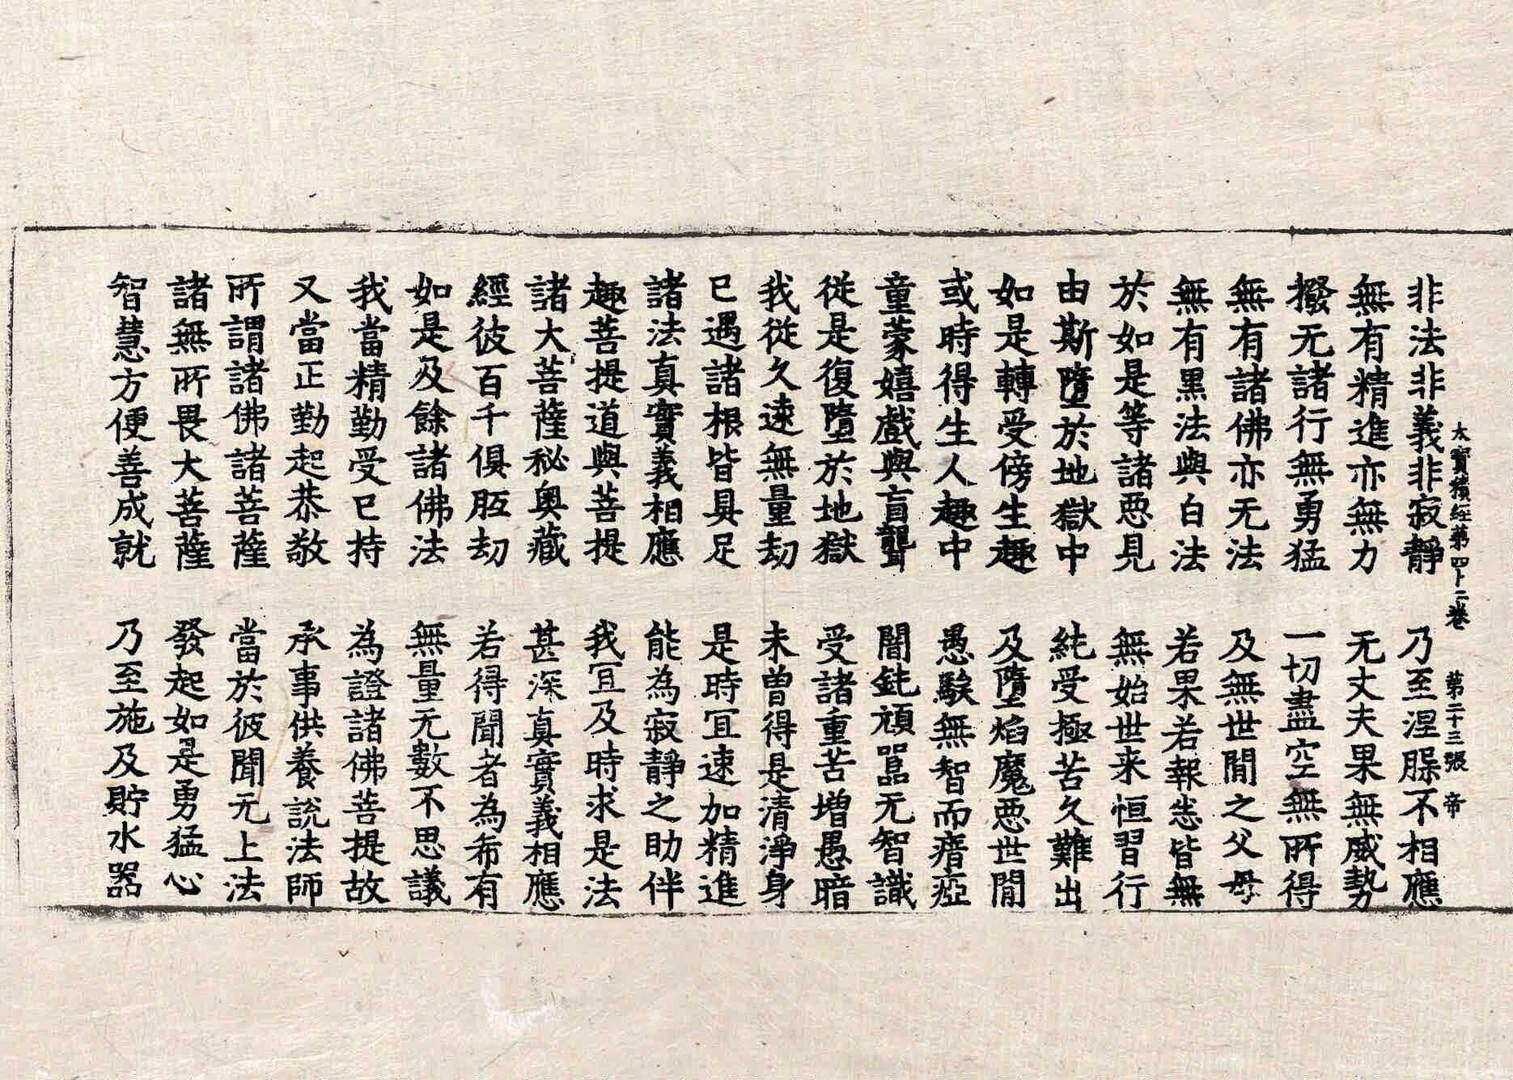 大寶積經第四十二卷 第二十三張 帝
非法非義非寂靜 乃至涅槃不相應
無有精進亦無力 无丈夫果無威勢
撥无諸行無勇猛 一切盡空無所得
無有諸佛亦无法 及無世間之父母
無有黑法與白法 若果若報悉皆無
於如是等諸惡見 無始世来恒習行
由斯墮於地獄中 純受極苦久難出
如是轉受傍生趣 及墮焰魔惡世間
或時得生人趣中 愚騃無智而瘖瘂
童蒙嬉戲與盲聾 闇鈍頑嚚无智識
從是復墮於地獄 受諸重苦增愚暗
我從久遠無量劫 未曾得是清淨身
已遇諸根皆具足 是時宜速加精進
諸法真實義相應 能為寂靜之助伴
趣菩提道與菩提 我宜及時求是法
諸大菩薩秘奧藏 甚深真實義相應
經彼百千俱胝劫 若得聞者為希有
如是及餘諸佛法 無量无數不思議
我當精勤受已持 為證諸佛菩提故
又當正勤起恭敬 承事供養說法師
所謂諸佛諸菩薩 當於彼聞无上法
諸無所畏大菩薩 發起如是勇猛心
智慧方便善成就 乃至施及貯水器